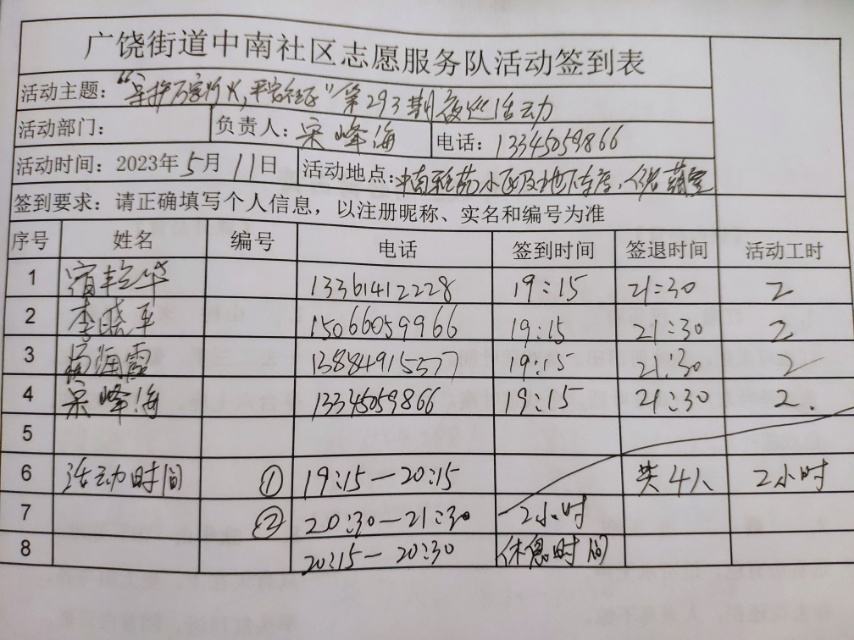 广饶街道中南社区志愿服务队活动签到表
活动主题：“守护万家灯火，平安社区”第293期夜巡活动
活动部门： 负责人：宋峰海 电话：13345059866
活动时间：2023年5月11日 活动地点：中南 小区及地下车库、
签到要求：请正确填写个人信息，以注册昵称、实名和编号为准
序号 姓名 编号 电话 签到时间 签退时间 活动工时
1 宿 华 13361412228 19:15 21:30 2
2 李晓军 15066059966 19:15 21:30 2
3 霞 13884915577 19:15 21:30 2
4 宋峰海 13345059866 19:15 21:30 2.
5
6 活动时间 ① 19:15—20:15 共4人 2小时
7 ② 20:30—21:30 2小时
8 20:15—20:30 休息时间